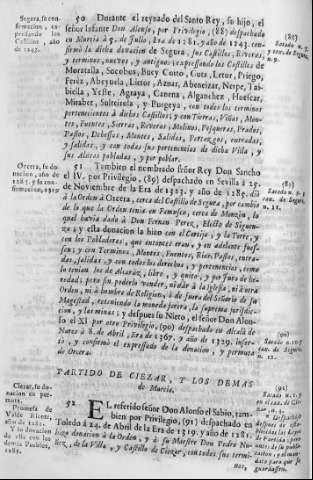 Segura, su con-
firmacion, ex-
pressando los
Castillos, año
de 1243.
50 Durante el reynado del Santo Rey, su hijo, el
señor Infante Don Alonso, por Privilegio, (88) despachado
en Murcia à 5. de Julio, Era de 1281. y año de 1243. con-
firmò la dicha donacion de Segura, sus Castillos, Riveras,
y terminos, nuevos, y antiguos; expressando los Castillos de
Moratalla, Socobos, Buey Cotto, Guta, Letur, Priego,
Ferez, Abeyuela, Lietor, Aznar, Abeneizar, Nerpe, Tai-
biella, Yeste, Agraya, Catena, Albanchez, Huescar,
Mirabet, Vulteirola, y Burgeya, con todos los terminos
pertenecientes à dichos Castillos; y con Tierras, Viñas, Mon-
tes, Fuentes, Sierras, Riveras, Molinos, Pesqueras, Prados,
Pastos, Dehessas, Montes, Salidas, Portazgos, entradas,
y salidas, y con todas sus pertenencias de dicha Villa, y
sus Aldeas pobladas, y por poblar.
(88)
Orcera, su do-
nacion, año de
1285. y su con-
firmacion, 1329
51. Tambien el nombrado señor Rey Don Sancho
el IV. por Privilegio, (89) despachado en Sevilla à 25.
de Noviembre de la Era de 1323. y año de 1285. diò
à la Orden à Orcera, cerca del Castillo de Segura, por cambio
de lo que la Orden tenia en Pamasco, cerca de Monçon, lo
qual havia dado à Don Fernan Perez, Electo de Seguen-
za; y esta donacion la hizo con el Cortijo, y la Torre, y
con los Pobladores, que entonces eran, y en adelante fues-
sen; y con Terminos, Montes, Fuentes, Rios, Pastos, entra-
das, salidas, y con todos los derechos, y pertenencias, como
la tenian los de Alcaràz, libre, y quito, y por juro de he-
redad; pero sin poderlo vender, ni dar à la Iglesia, ni à otra
Orden, ni à hombre de Religion, ò de fuera del Señorio de su
Magestad, reteniendo la moneda forera, la suprema jurisdic-
cion, y las minas; y despues su Nieto, el señor Don Alon-
so el XI por otro Privilegio, (90) despachado en Alcalà de
Nares à 8. de Abril, Era de 1367. y año de 1329. inser-
tò, y confirmò el expressado de la donacion, y permuta
de Orcera.
(89)
(90)
PARTIDO DE CIEZAR, Y LOS DEMAS
de Murcia.
Ciezar, su do-
nacion en per-
muta.
Promesa de
y la donacion
de ella con los
demàs Pueblos,
1285.
52. EL referido señor Don Alonso el Sabio, tam-
bien por Privilegio, (91) despachado en
Toledo à 24. de Abril de la Era de 1319. y año de 1281.
hizo donacion à la Orden, y à su Maestre Don Pedro Nu-
ñez, de la Villa, y Castillo de Ciezar, con todos sus termi-
nos,
(91)